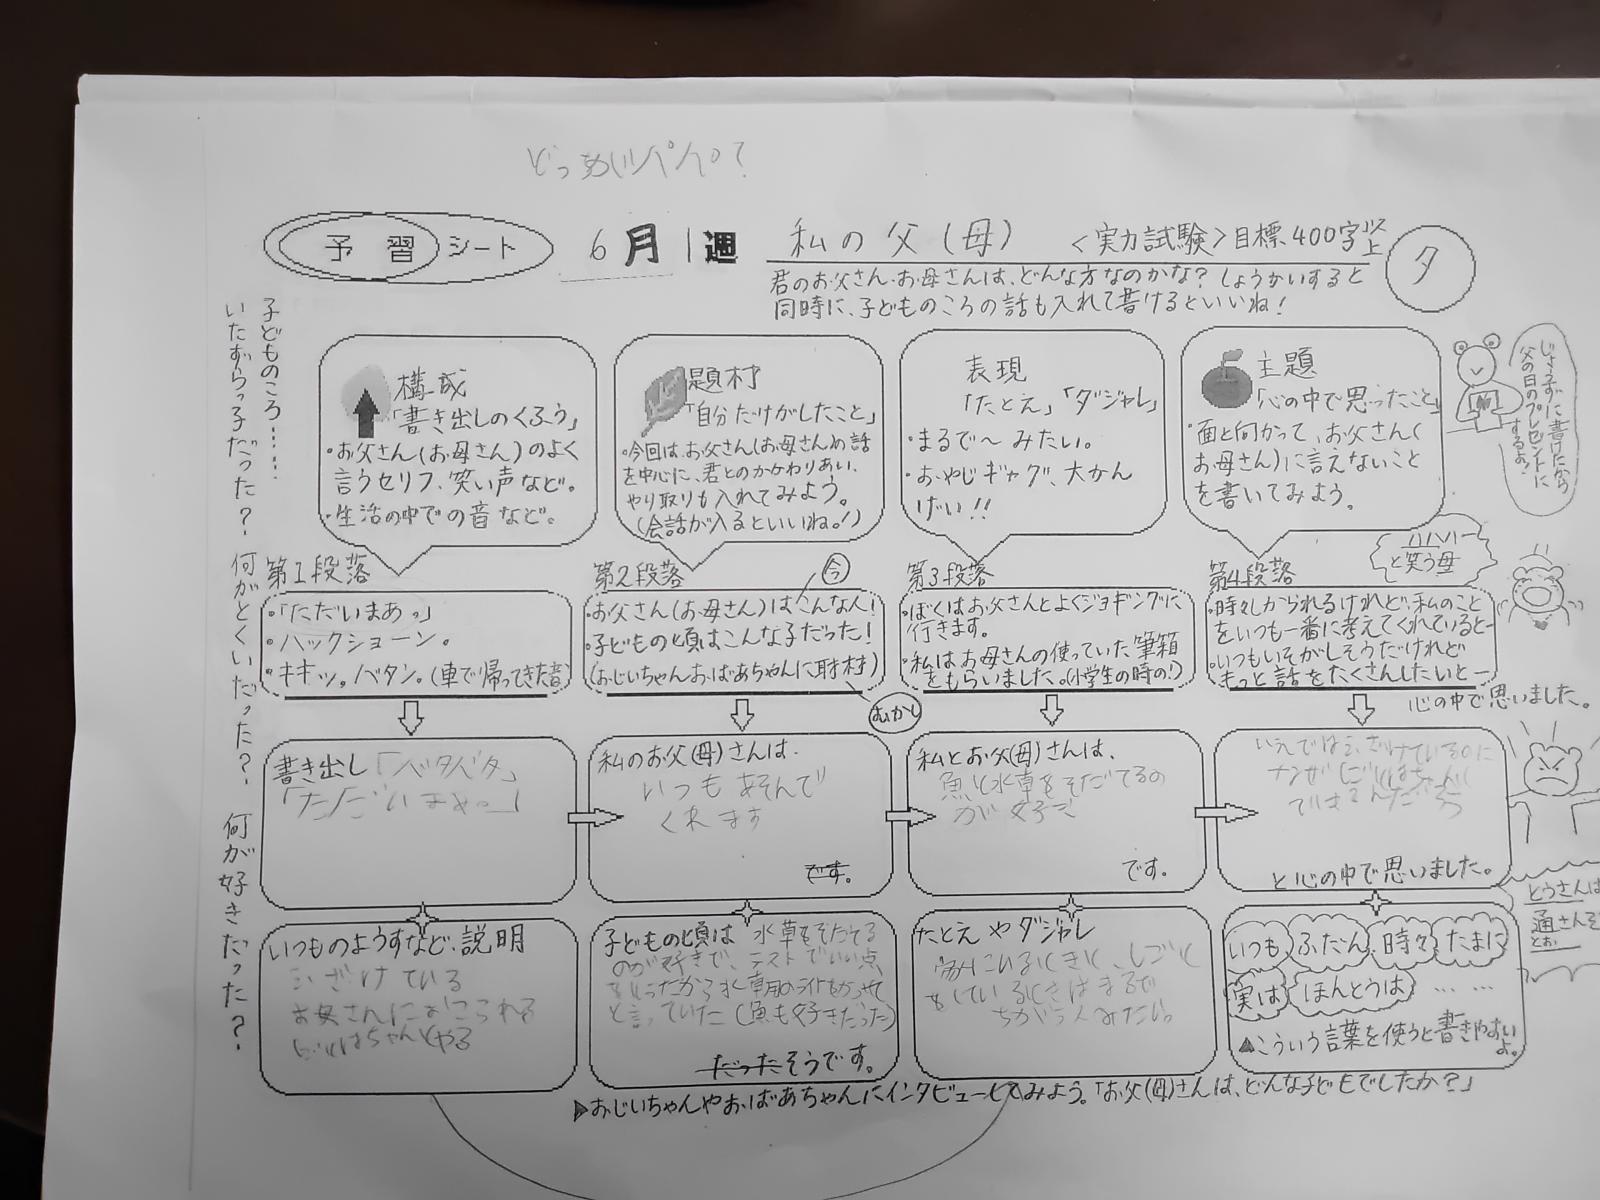 予習シート
6月1週
私の父(母)
<実力試験>目標400字以上
夕
君のお父さん・お母さんは、どんな方なのかな? しょうかいすると
同時に、子どものころの話も入れて書けるといいね!
子どものころ……
いたずらっ子だった?
何がとくいだった?
何が好きだった?
構成
「書き出しのくふう」
・お父さん(お母さん)のよく
言うセリフ、笑い声など。
・生活の中での音など。
題材
「自分だけがしたこと」
・今回は、お父さん(お母さん)の話
を中心に、君とのかかわりあい、
やり取りも入れてみよう。
(会話が入るといいね。!)
表現
「たとえ」「ダジャレ」
・まるで〜みたい。
・おやじギャグ、大かん
げい!!
主題
「心の中で思ったこと」
・面と向かって、お父さん(
お母さん)に言えないこと
を書いてみよう。
じょうずに書けたから
父の日のプレゼントに
するよ!
ハハハー
と笑う母
第1段落
・「ただいまあっ」
・ハックショーン。
・キキッ。バタン。(車で帰ってきた音)
第2段落
今
・お父さん(お母さん)はこんな人!
・子どもの頃はこんな子だった!
(おじいちゃんおばあちゃんに取材)
むかし
第3段落
・ぼくはお父さんとよくジョギングに
行きます。
・私はお母さんの使っていた筆箱
をもらいました。(小学生の時の!)
第4段落
・時々しかられるけれど、私のこと
をいつも一番に考えてくれていると―
・いつもいそがしそうだけれど
もっと話をたくさんしたいと―
心の中で思いました。
書き出し「バタバタ」
「ただいまぁっ」
私のお父(母)さんは、
いつもあそんで
くれます
です。
私とお父(母)さんは、
魚と水草をそだてるの
が好きで
です。
いえではふざけているのに
と心の中で思いました。
いつものようすなど、説明
ふざけている
お母さんにおこられる
子どもの頃は 水草をそだてる
のが好きで、テストでいい点
をとったから水草用のライトをかって
と言っていた(魚も好きだった)
だったそうです。
たとえやダジャレ
をしているときはまるで
ちがう人みたい。
いつも ふだん 時々 たまに
実は ほんとうは ……
▲こういう言葉を使うと書きやすいよ。
とうさんは
▶おじいちゃんやおばあちゃんにインタビューしてみよう。「お父(母)さんは、どんな子どもでしたか?」